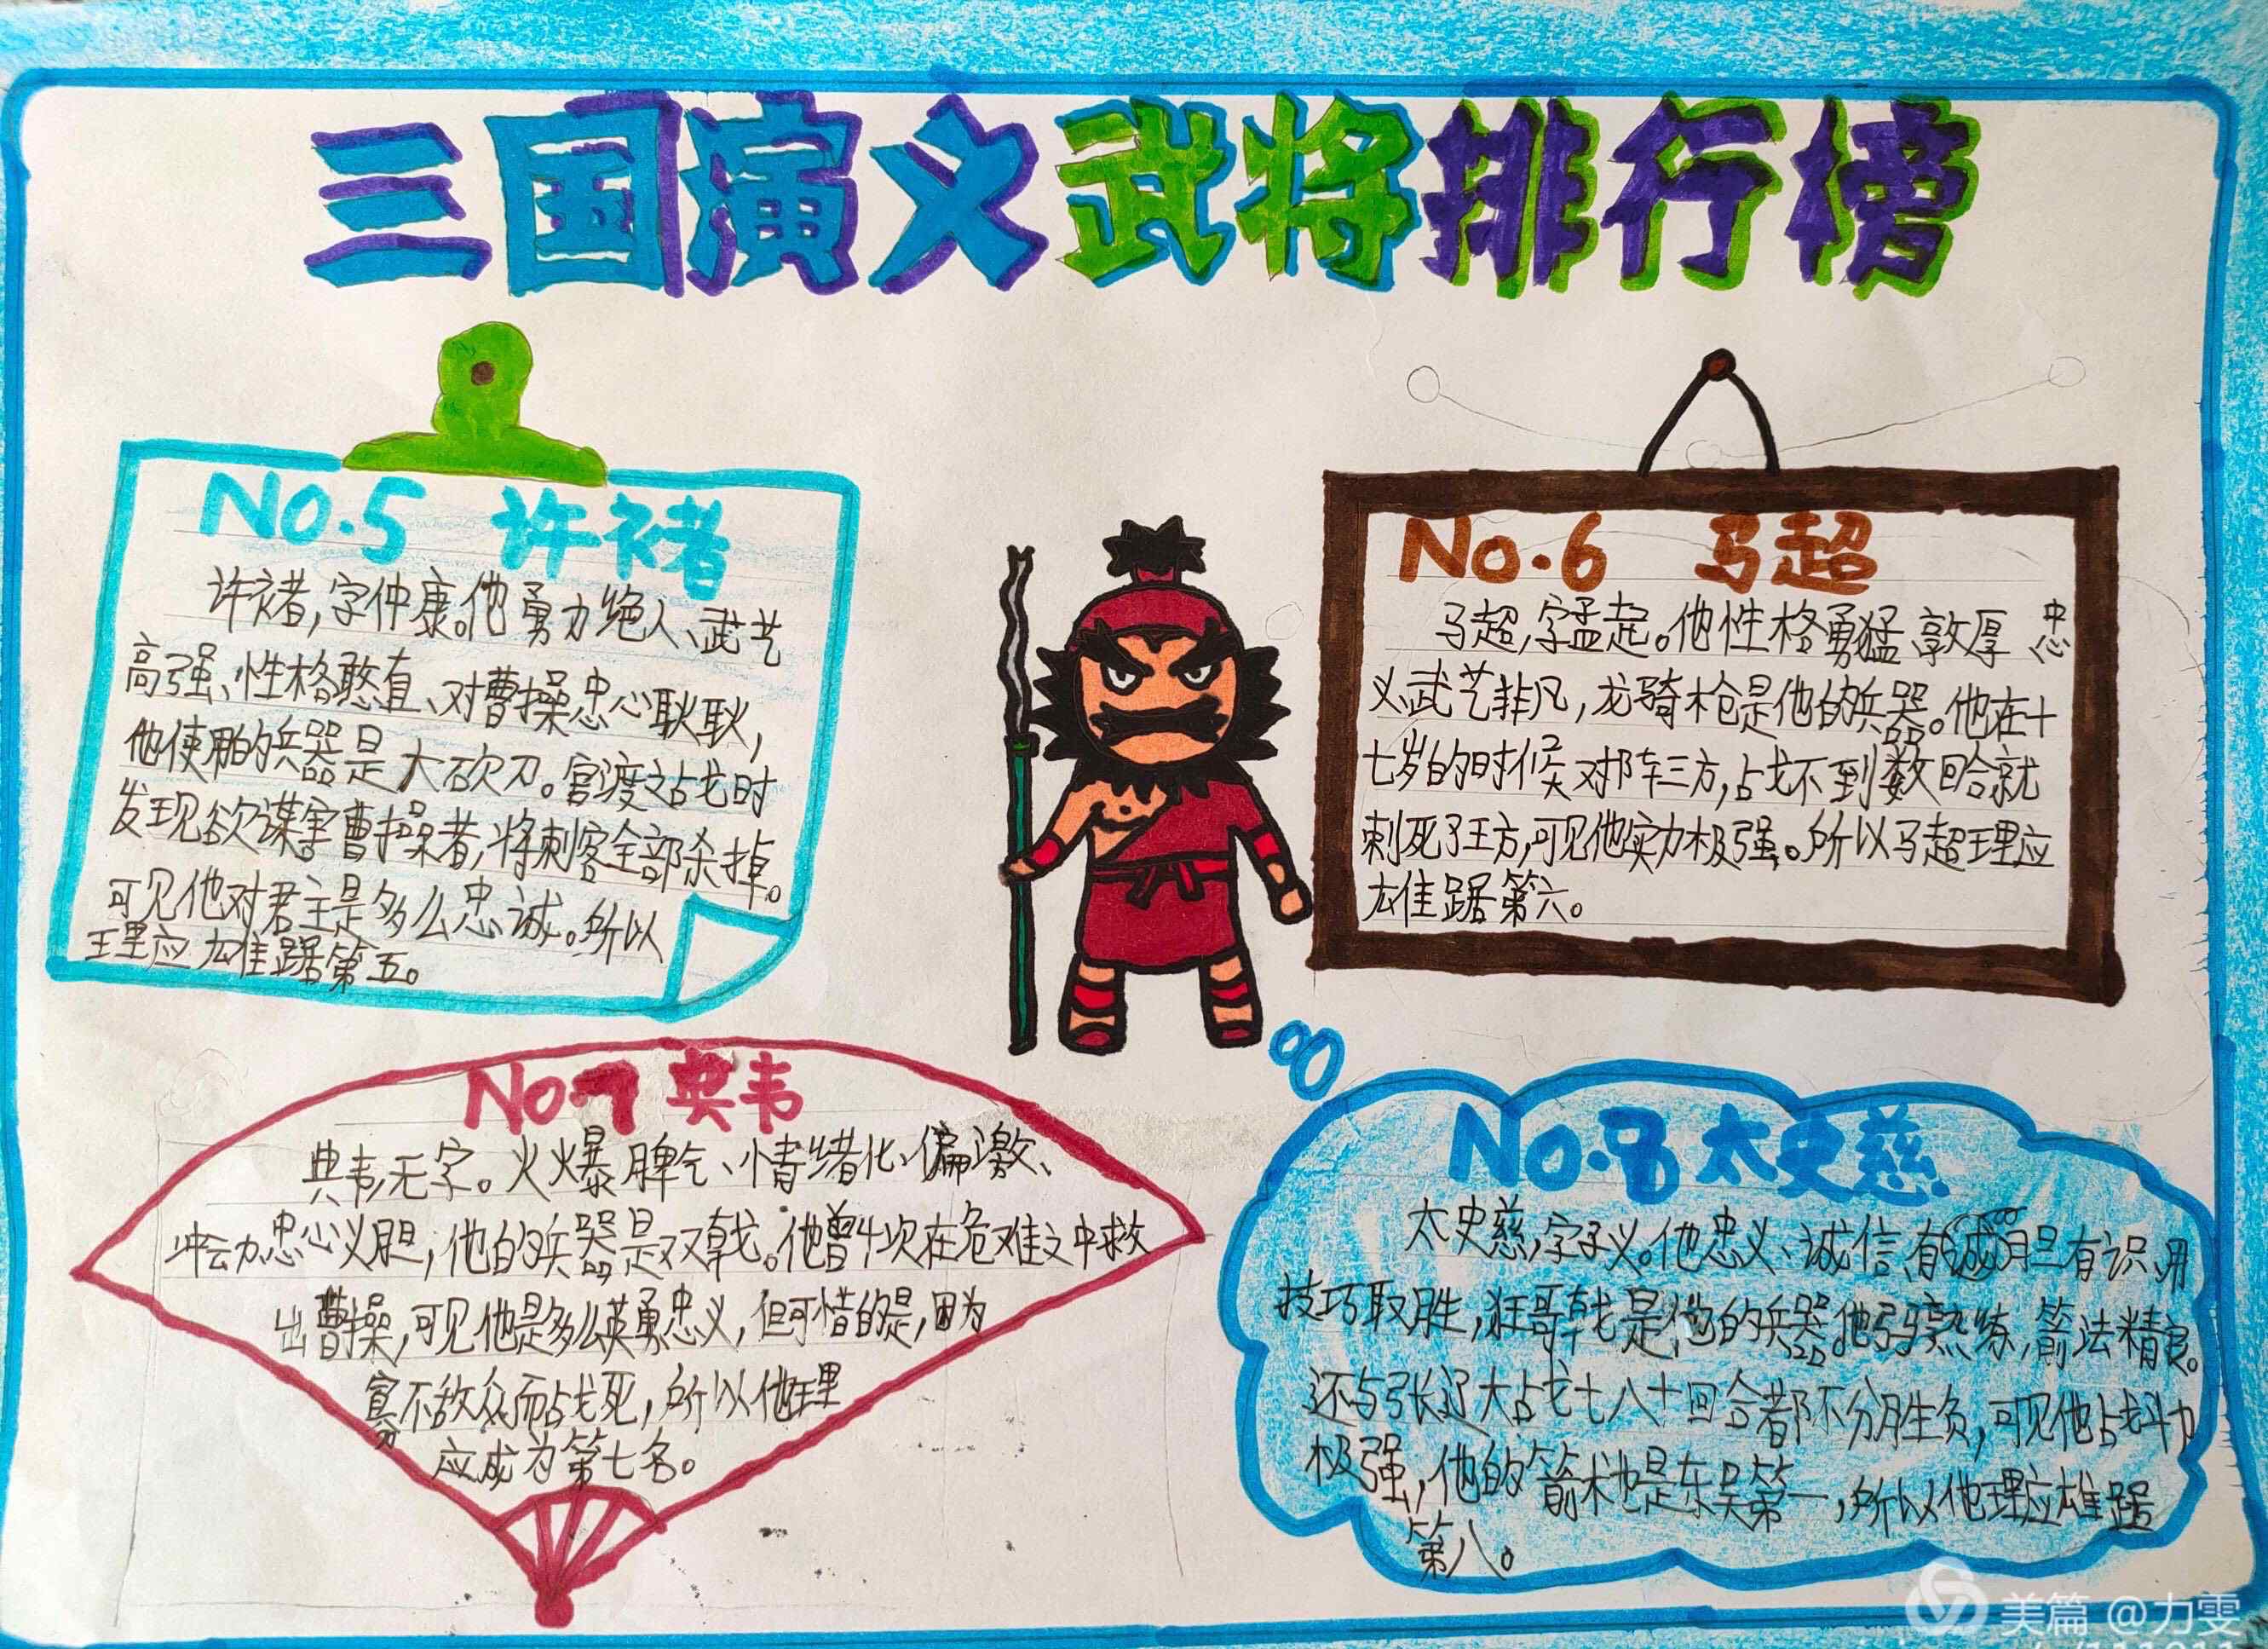 三国演义武将排行榜
No.5 许褚
许褚,字仲康。他勇力绝人、武艺
高强、性格憨直、对曹操忠心耿耿,
他使用的兵器是大砍刀。官渡之战时
发现欲谋害曹操者,将刺客全部杀掉。
可见他对君主是多么忠诚。所以
理应雄踞第五。
No.6 马超
马超,字孟起。他性格勇猛、敦厚、忠
义、武艺非凡,龙骑枪是他的兵器。他在十
七岁的时候对阵王方,战不到数回合就
刺死了王方,可见他实力极强。所以马超理应
雄踞第六。
No.7 典韦
典韦,无字。火爆脾气、情绪化、偏激、
冲动、忠心义胆,他的兵器是双戟。他曾4次在危难之中救
出曹操,可见他是多么英勇忠义,但可惜的是,因为
寡不敌众而战死,所以他理
应成为第七名。
No.8 太史慈
太史慈,字子义。他忠义、诚信、有胆有识、用
技巧取胜,狂哥戟是他的兵器。他弓马熟练,箭法精良。
还与张辽大战七八十回合都不分胜负,可见他战斗力
极强,他的箭术也是东吴第一,所以他理应雄踞
第八。
美篇 @力雯